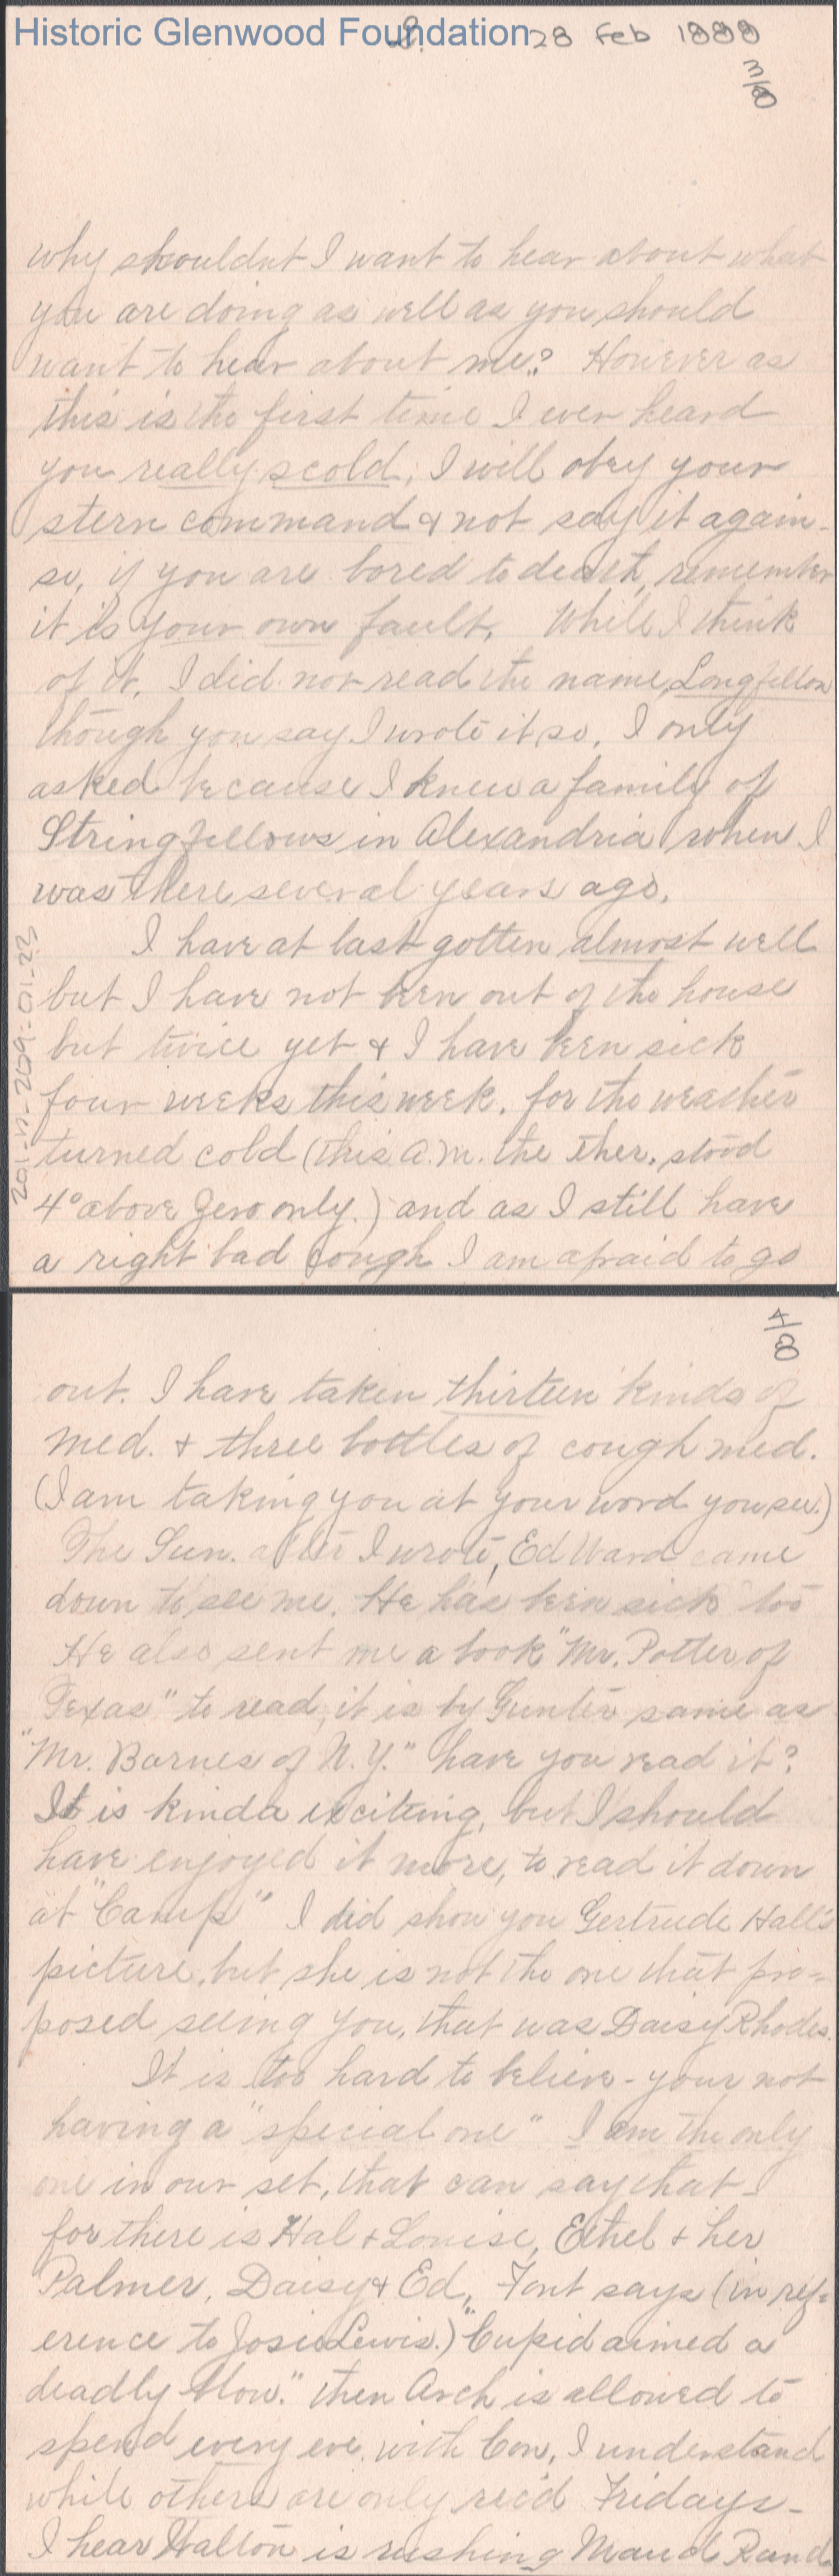 Historic Glenwood Foundation
2.
28 Feb 1889
3/8
why shouldnt I want to hear about what
you are doing as well as you should
want to hear about me? However as
this is the first time I ever heard
you really scold, I will obey your
stern command & not say it again-
so, if you are bored to death, remember
it is your own fault. While I think
of it, I did not read the name, Longfellow
though you say I wrote it so, I only
asked because I knew a family of
Stringfellows in Alexandria when I
was there several years ago.
I have at last gotten almost well
but I have not been out of the house
but twice yet & I have been sick
four weeks this week. for the weather
turned cold (this a.m. the ther. stood
4° above Zero only.) and as I still have
a right bad cough I am afraid to go
201-17-209-01-23
4/8
out. I have taken thirteen kinds of
med. & three bottles of cough med.
(I am taking you at your word you see.)
The Sun. after I wrote, Ed Ward came
down to see me. He has been sick too
He also sent me a book "Mr. Potter of
Texas" to read, it is by Gunter same as
"Mr. Barnes of N.Y." have you read it?
It is kinda exciting, but I should
have enjoyed it more, to read it down
at "Camp" I did show you Gertrude Hall's
picture, but she is not the one that pro=
posed seeing you, that was Daisy Rhodes.
It is too hard to believe - your not
having a "special one" I am the only
one in our set, that can say that -
for there is Hal & Louise, Ethel & her
Palmer, Daisy & Ed, Font says (in ref=
erence to Josie Lewis.) "Cupid aimed a
deadly blow." then Arch is allowed to
spend every eve. with Con, I understand
while others are only rec'd Fridays-
I hear Walton is rushing Maud Rand